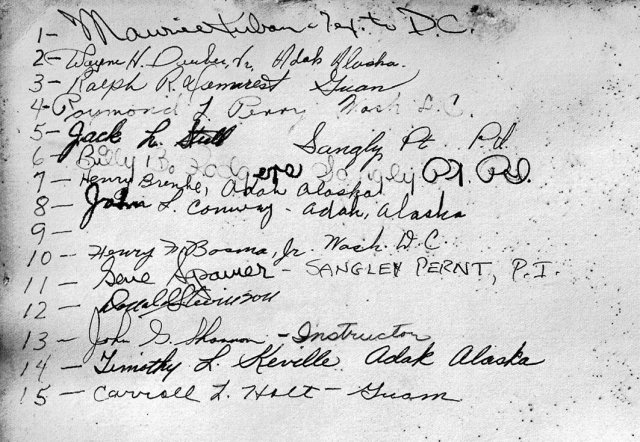 1- Maurice Luban - Tex. to D.C.
2- Wayne H. Adak Alaska.
3- Ralph R. Guam
4- Raymond L Perry Wash D.C.
5- Jack L. Still Sangly Pt P.I.
6- Billy Bo Sangly Pt. P.I.
7- Henry Adak Alaska
8- John L. Conway - Adak, Alaska
9-
10- Henry W. Bosma, Jr. Wash. D.C
11- Gene Spawer - SANGLEY PERNT, P.I.
12- Donald Stevenson
13- John G. Shannon - Instructor
14- Timothy L. Keville Adak Alaska
15- Carroll L. Holt - Guam